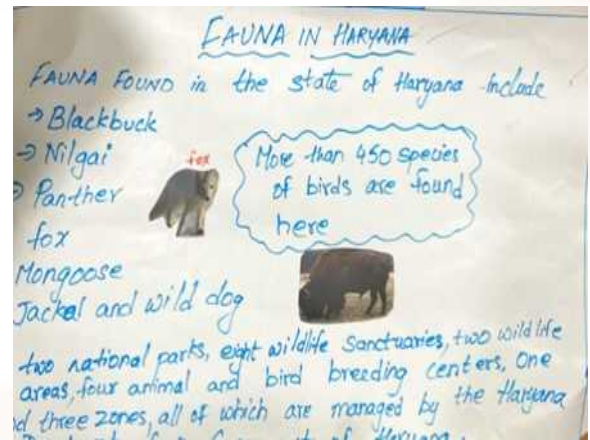 FAUNA IN HARYANA
FAUNA FOUND in the state of Haryana include
→ Blackbuck
→ Nilgai
→ Panther
fox
Mongoose
Jackal and wild dog
fox
More than 450 species
of birds are found
here
two national parks, eight wildlife Sanctuaries, two wildlife
areas, four animal and bird breeding centers, One
three zones, all of which are managed by the Haryana
of Haryana